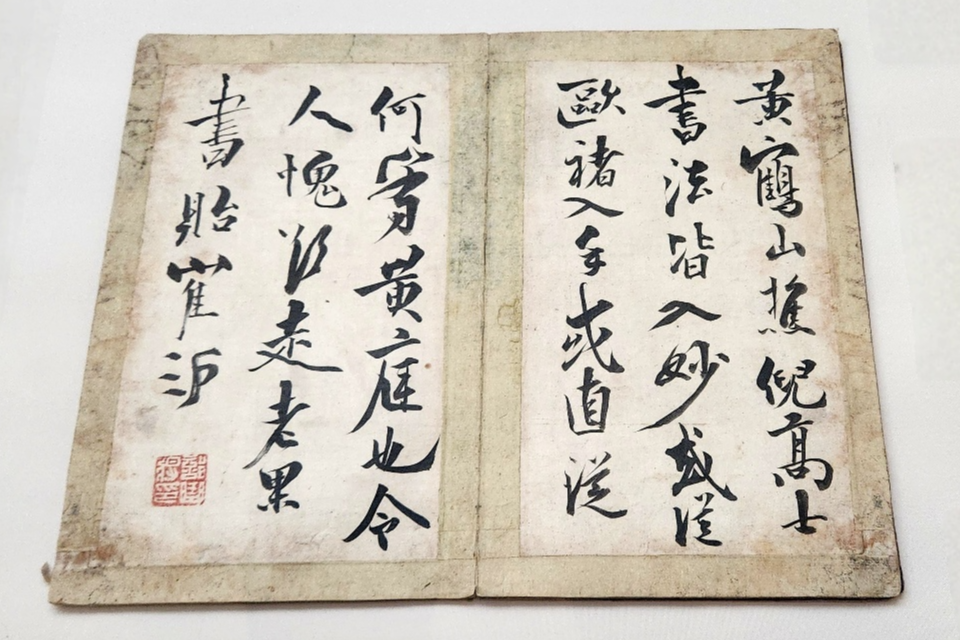 黄鶴山樵倪高士
書法皆入妙或從
歐褚入手或直從
何黄庭也令
人愧欲走老果
書貽崔